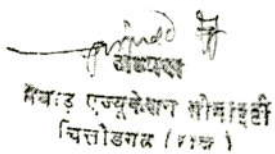 अध्यक्ष
मेवाड़ एज्यूकेशन सोसाइटी
चित्तोडगढ (राज )